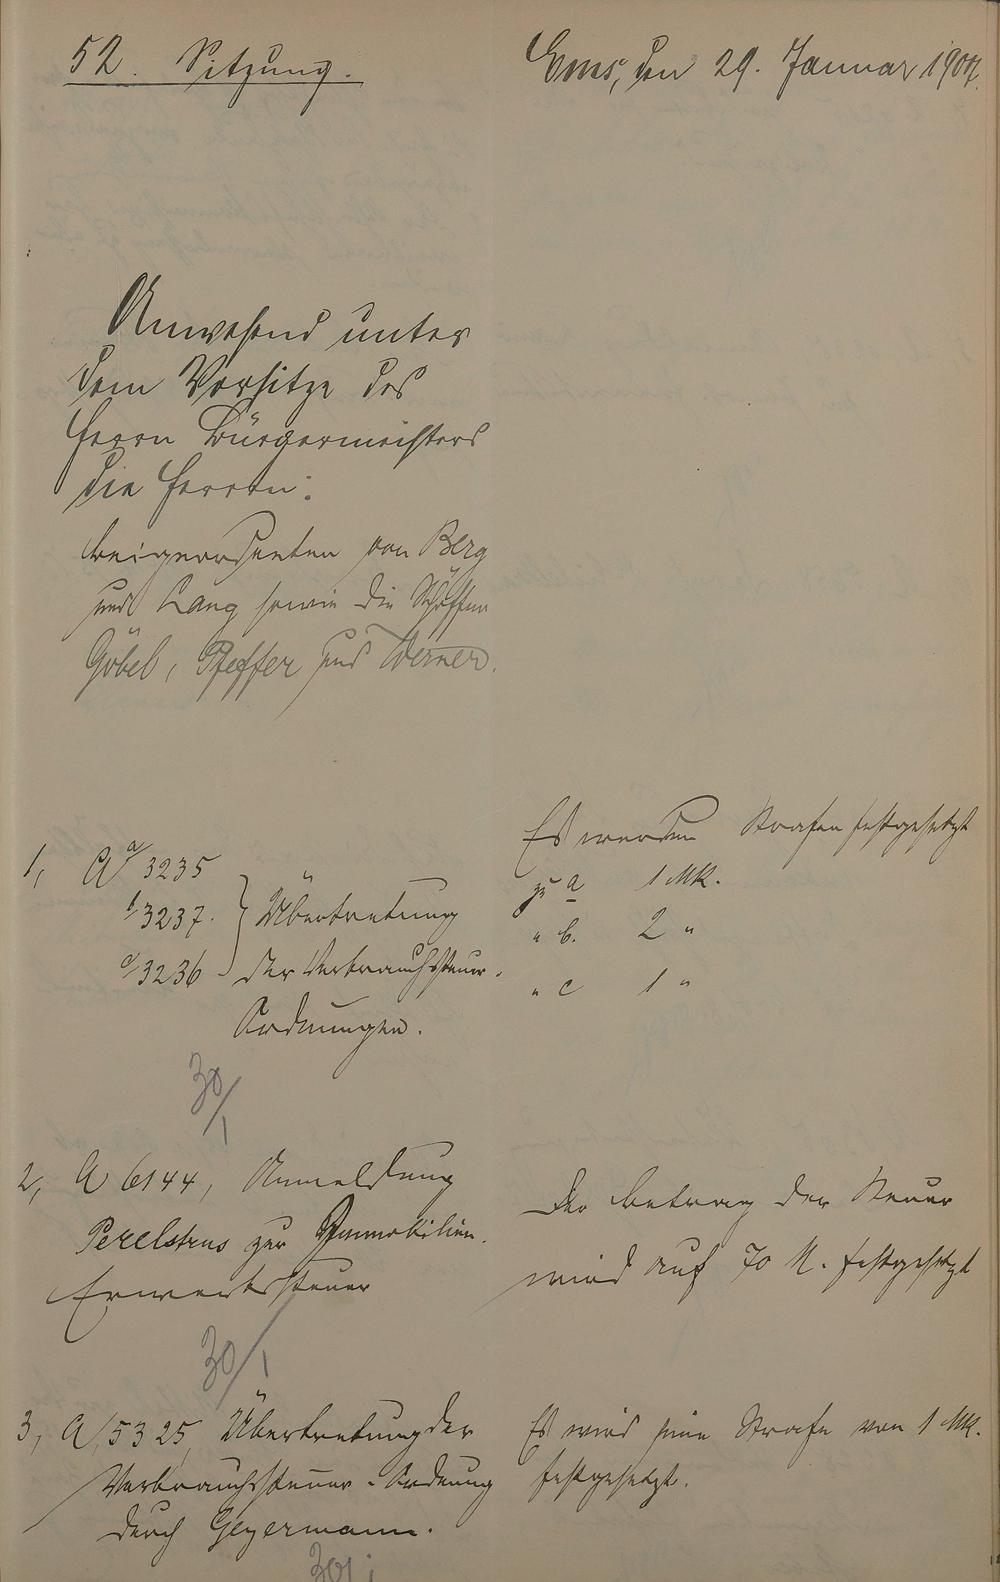 52. Sitzung.
Ems, den 29. Januar 1907.
Anwesend unter
dem Vorsitze des
Herrn Bürgermeisters
die Herren:
Beigeordneten von Berg
und Lang sowie die Schöffen
Göbel, Pfeffer und Werner.
1, A a/ 3235
b/ 3237.
c/ 3236
Übertretung
der Verbrauchssteuer-
Ordnungen.
Es werden Strafen festgesetzt
zu a 1 Mk.
" b. 2 "
" c 1 "
30/1
2, A 6144, Anmeldung
Perelstrus zur Immobilien-
Erwerbssteuer
Der Betrag der Steuer
wird auf 70 M. festgesetzt
30/1
3, A 5325, Übertretung der
Verbrauchssteuer-Ordnung
durch Geyermann.
Es wird eine Strafe von 1 Mk.
festgesetzt.